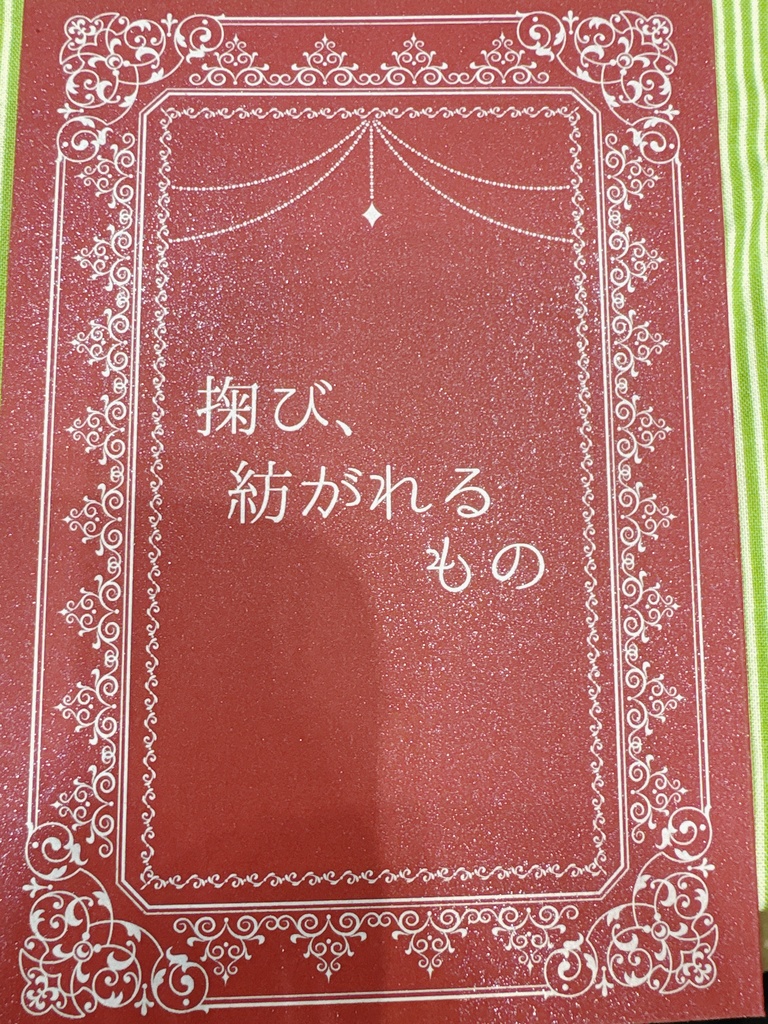 掬び、
紡がれる
もの